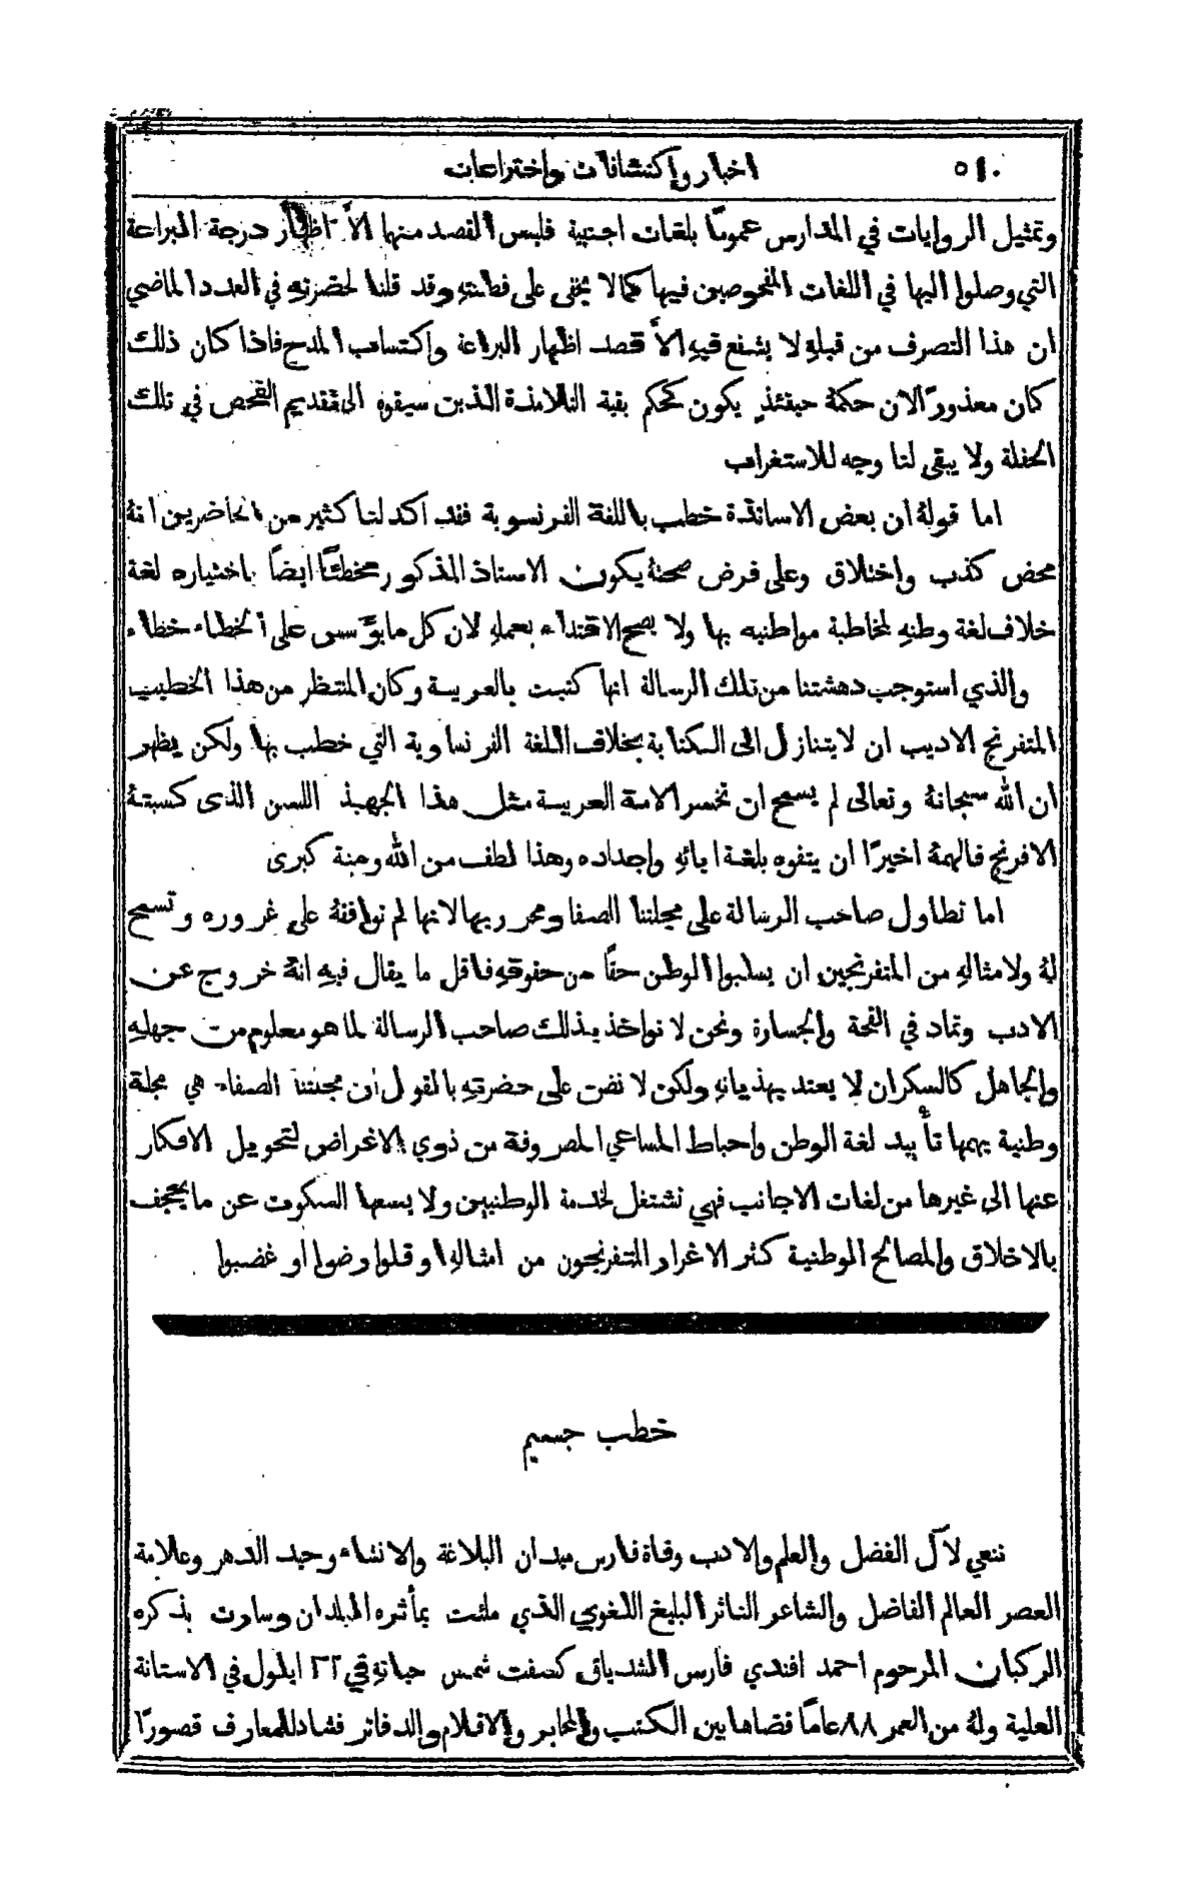 ٥١٠ اخبار واكتشافات واختراعات
وتمثيل الروايات في المدارس عموماً بلغات اجنبية فليس القصد منها الاَّ اظهار درجة البراعة
التي وصلوا اليها في اللغات المفحوصين فيها كما لا يخفى على فطنتهِ وقد قلنا لحضرتهِ في العدد الماضي
ان هذا التصرف من قبلهِ لا يشفع فيهِ الاَّ قصد اظهار البراعة واكتساب المدح فاذا كان ذلك
كان معذوراً لان حكمهُ حينئذٍ يكون كحكم بقية التلامذة الذين سيقوا الى تقديم الفحص في تلك
الحفلة ولا يبقى لنا وجه للاستغراب
اما قولهُ ان بعض الاساتذة خطب باللغة الفرنسوية فقد اكد لنا كثير من الحاضرين انهُ
محض كذب واختلاق وعلى فرض صحتهُ يكون الاستاذ المذكور مخطئاً ايضاً باختياره لغة
خلاف لغة وطنهِ لمخاطبة مواطنيه بها ولا يصح الاقتداء بعملهِ لان كل ما يوَّسس على الخطاء خطاء
والذي استوجب دهشتنا من تلك الرسالة انها كتبت بالعربية وكان المنتظر من هذا الخطيب
المتفرنج الاديب ان لا يتنازل الى الكتابة بخلاف اللغة الفرنساوية التي خطب بها ولكن يظهر
ان الله سبحانهُ وتعالى لم يسمح ان تخسر الامة العربية مثل هذا الجهبذ اللسن الذى كسبتهُ
الافرنج فالهمهُ اخيراً ان يتفوه بلغة ابائهِ واجداده وهذا لطف من الله ومنة كبرى
اما تطاول صاحب الرسالة على مجلتنا الصفا ومحرريها لانها لم توافقهُ على غروره وتسمح
لهُ ولامثالهِ من المتفرنجين ان يسلبوا الوطن حقاً من حقوقهِ فاقل ما يقال فيهِ انهُ خروج عن
الادب وتماد في القحة والجسارة ونحن لا نواخذ بذلك صاحب الرسالة لما هو معلوم من جهلهِ
والجاهل كالسكران لا يعتد بهذيانهِ ولكن لا نضن على حضرتهِ بالقول ان مجلتنا الصفاء هي مجلة
وطنية يهمها تأييد لغة الوطن واحباط المساعي المصروفة من ذوي الاغراض لتحويل الافكار
عنها الى غيرها من لغات الاجانب فهي تشتغل لخدمة الوطنيين ولا يسعها السكوت عن ما يجحف
بالاخلاق والمصالح الوطنية كثر الاغرار المتفرنجون من امثالهِ او قلوا رضوا او غضبوا
خطب جسيم
ننعي لآل الفضل والعلم والادب وفاة فارس ميدان البلاغة والانشاء وحيد الدهر وعلامة
العصر العالم الفاضل والشاعر الناثر البليغ اللغوي الذي ملئت بمأثره البلدان وسارت بذكره
الركبان المرحوم احمد افندي فارس الشدياق كسفت شمس حياتهِ في ٢٢ ايلول في الاستانة
العلية ولهُ من العمر ٨٨ عاماً قضاها بين الكتب والمحابر والاقلام والدفاتر فشاد للمعارف قصوراً